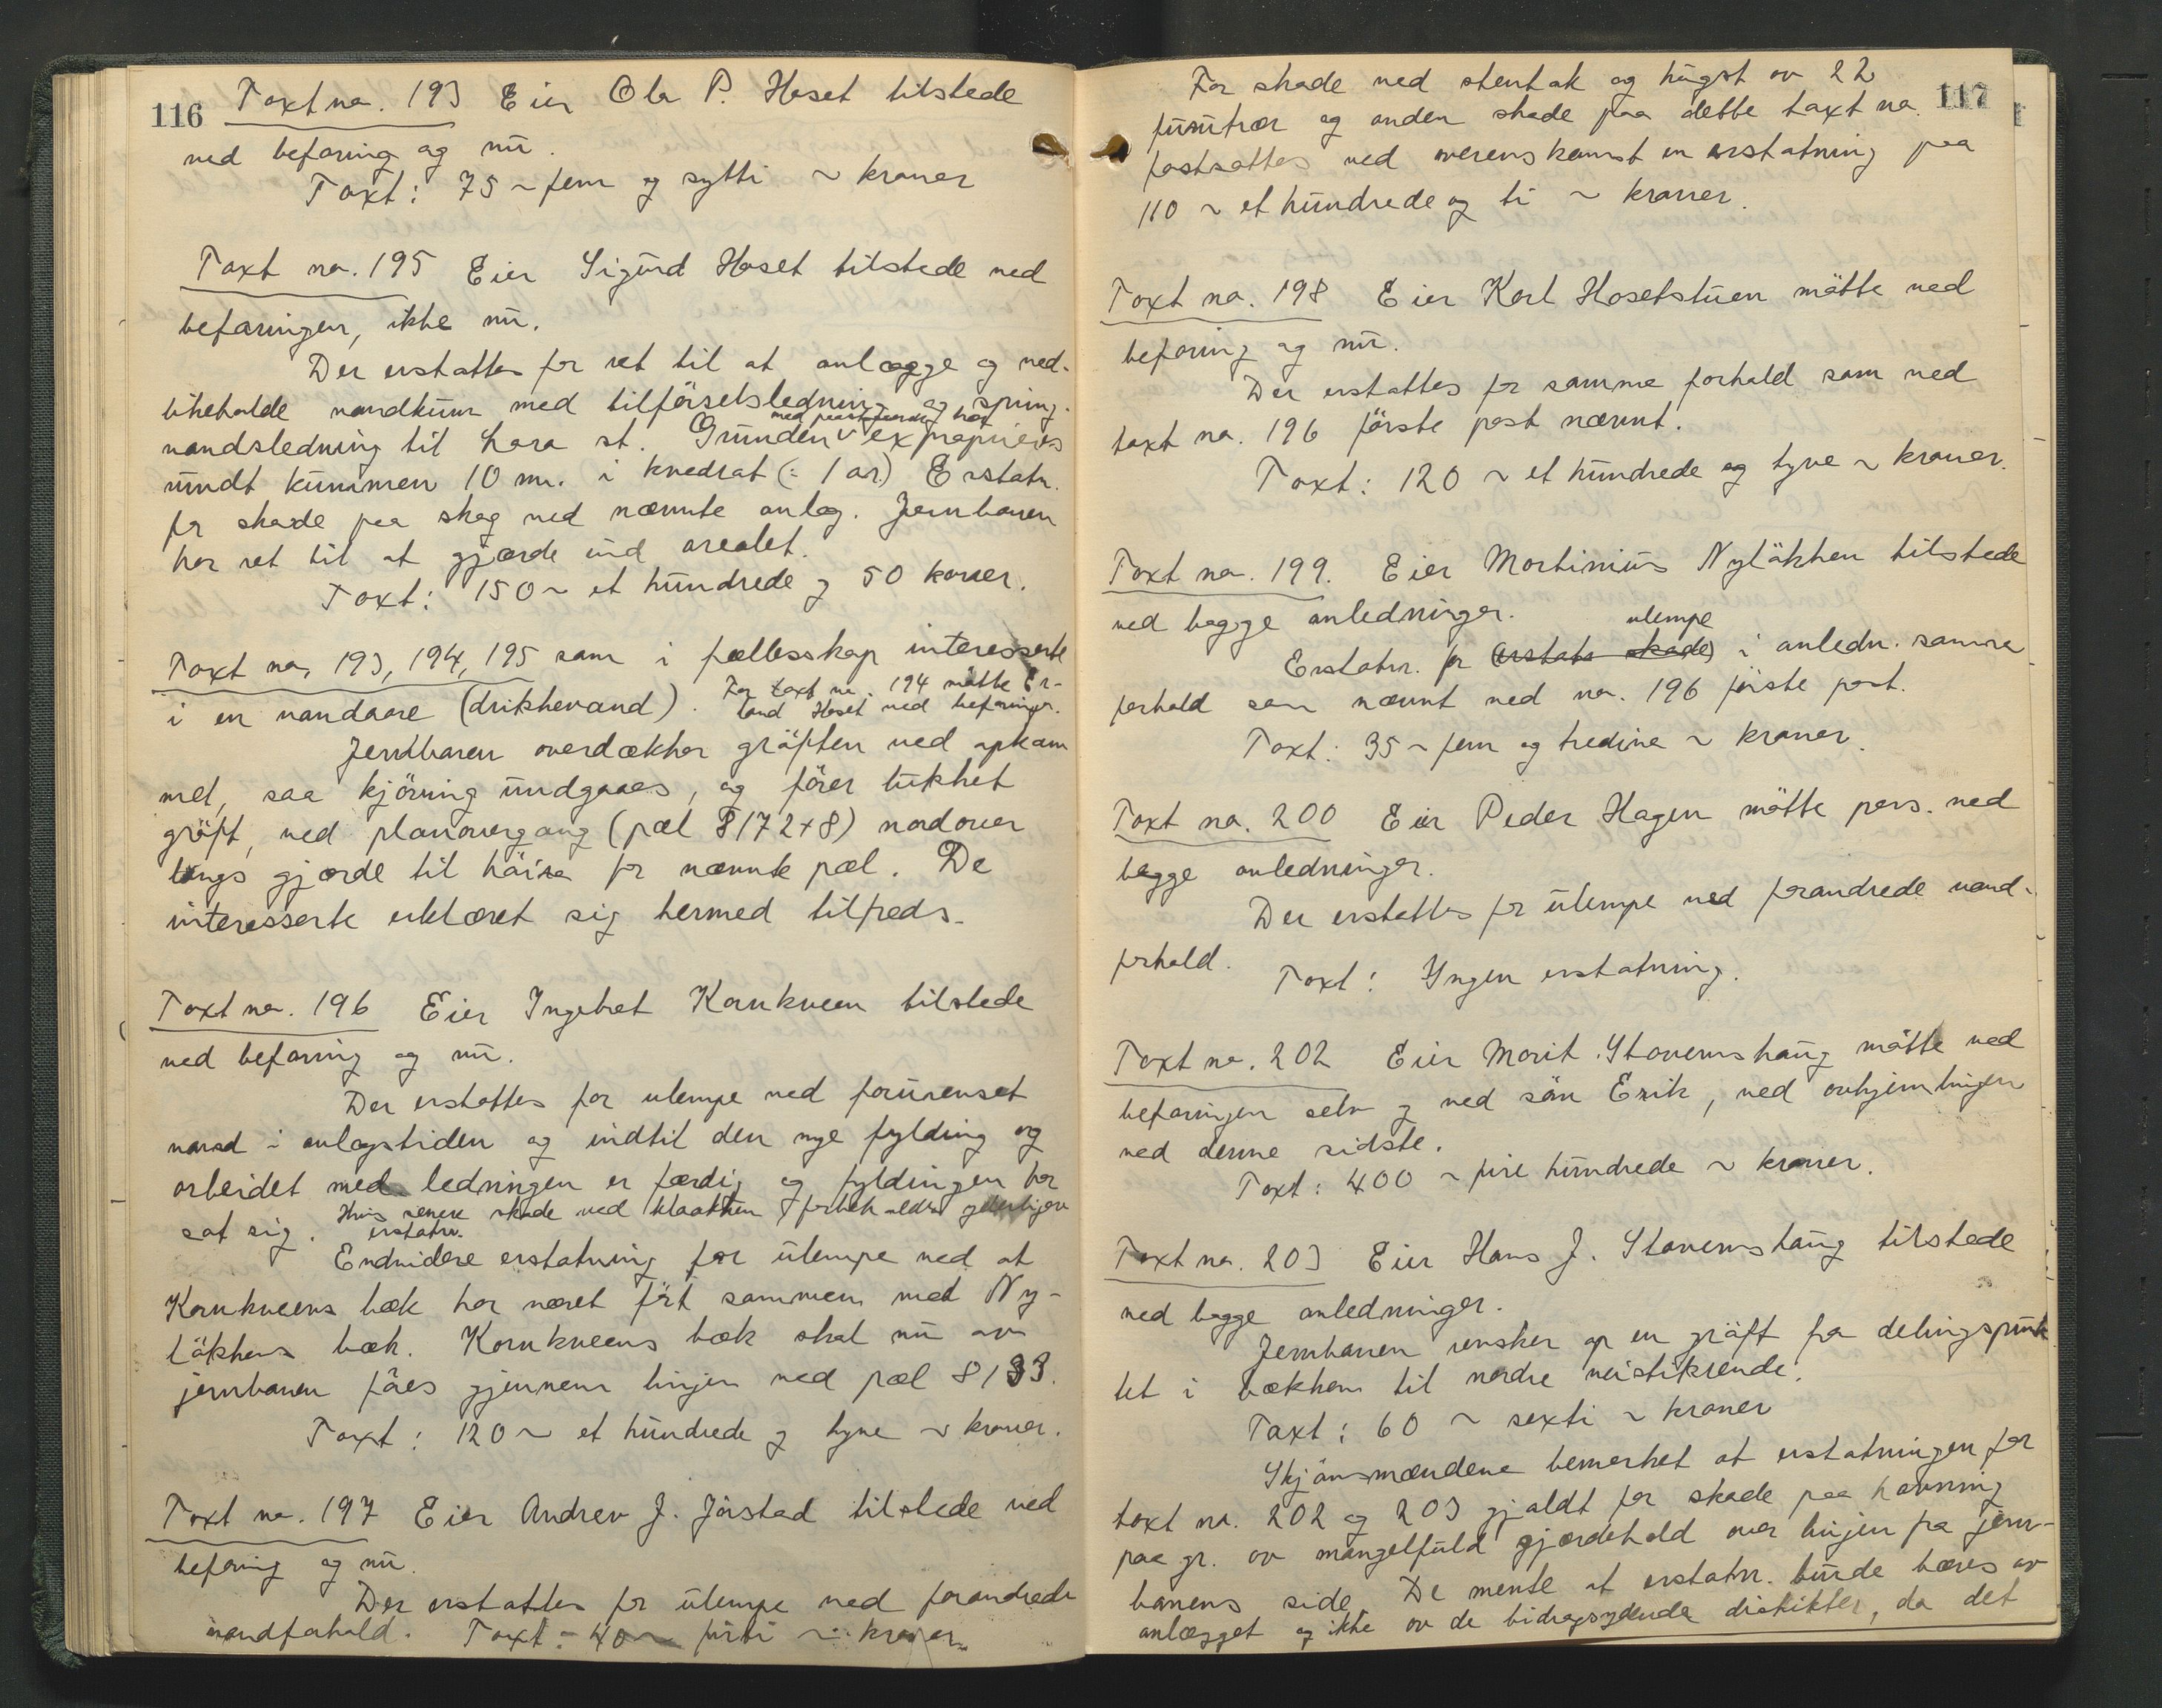 116
Taxt no. 193 Eier Ola P. Haset tilstede
ved befaring og nu.
Taxt: 75 ~ fem og sytti ~ kroner
Taxt no. 195 Eier Sigurd Haset tilstede ved
befaringen, ikke nu.
Der erstattes for ret til at anlægge og ved-
likeholde vandkum med tilförselsledning og spring-
vandsledning til Lara st. Grunden med paastaaende hæg exproprieres
rundt kummen 10 m. i kvadrat (: 1 ar) Erstatn.
for skade paa skog ved nævnte anlæg. Jernbanen
har ret til at gjærde ind arealet.
Taxt: 150 ~ et hundrede og 50 kroner.
Taxt no. 193, 194, 195 som i fællesskap interesserte
i en vandaare (drikkevand). For taxt no. 194 mötte Er-
land Haset ved befaringen.
Jernbanen overdækker gröften ved opkom
met, saa kjöring undgaaes, og förer lukket
gröft, ved planovergang (pæl 8172+8) nordover
langs gjærde til höire for nævnte pæl. De
interesserte erklæret sig hermed tilfreds.
Taxt no. 196 Eier Ingebret Kornkveen tilstede
ved befaring og nu.
Der erstattes for ulempe ved forurenset
vand i anlægstiden og indtil den nye fylding og
arbeidet med ledningen er færdig og fyldingen har
sat sig. Hvis senere skade ved klaakken forbeholdes yderligere
erstatn.
Endvidere erstatning for ulempe ved at
Kornkveens bæk har været fört sammen med Ny-
lökkens bæk. Kornkveens bæk skal nu av
jernbanen föres gjennem linjen ved pæl 8133.
Taxt: 120 ~ et hundrede og tyve ~ kroner.
Taxt no. 197 Eier Andrev J. Jörstad tilstede ved
befaring og nu.
Der erstattes for ulempe ved forandrede
vandforhold. Taxt: 40 ~ firti ~ kroner.
117
For skade ved stentak og hugst av 22
furutrær og anden skade paa dette taxt no.
fastsattes ved overenskomst en erstatning paa
110 ~ et hundrede og ti ~ kroner.
Taxt no. 198 Eier Karl Hosetstuen mötte ved
befaring og nu.
Der erstattes for samme forhold som ved
taxt no. 196 förste post nævnt.
Taxt: 120 ~ et hundrede og tyve ~ kroner.
Taxt no. 199. Eier Martinius Nylökken tilstede
ved begge anledninger.
Erstatn. for (erstatn skade) ulempe i anledn. samme
forhold som nævnt ved no. 196 förste post.
Taxt: 35 ~ fem og tredive ~ kroner.
Taxt no. 200 Eier Peder Hagen mötte pers. ved
begge anledninger.
Der erstattes for ulempe ved forandrede vand-
forhold.
Taxt: Ingen erstatning.
Taxt no. 202 Eier Marit Stavemshaug mötte ved
befaringen selv og ved sön Erik, ved avhjemlingen
ved denne sidste.
Taxt: 400 ~ fire hundrede ~ kroner.
Taxt no. 203 Eier Hans J. Stavemshaug tilstede
ved begge anledninger.
Jernbanen rensker op en gröft fra delingspunk
tet i bækken til nordre veistikrende.
Taxt: 60 ~ sexti ~ kroner
Skjönsmændene bemerket at erstatningen for
taxt no. 202 og 203 gjaldt for skade paa havning
paa gr. av mangelfuld gjærdehold over linjen fra jern-
banens side. De mente at erstatn. burde bæres av
anlægget og ikke av de bidragsydende distrikter, da det